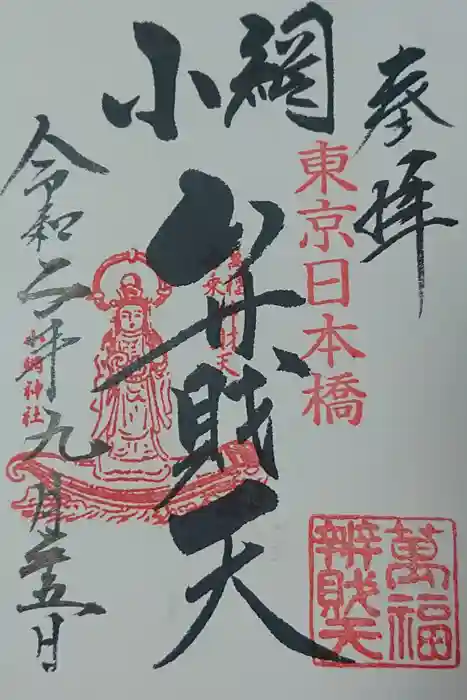 奉拝
東京日本橋
小網
弁財天
令和二年九月二十五日
小網神社
萬福
辨財天